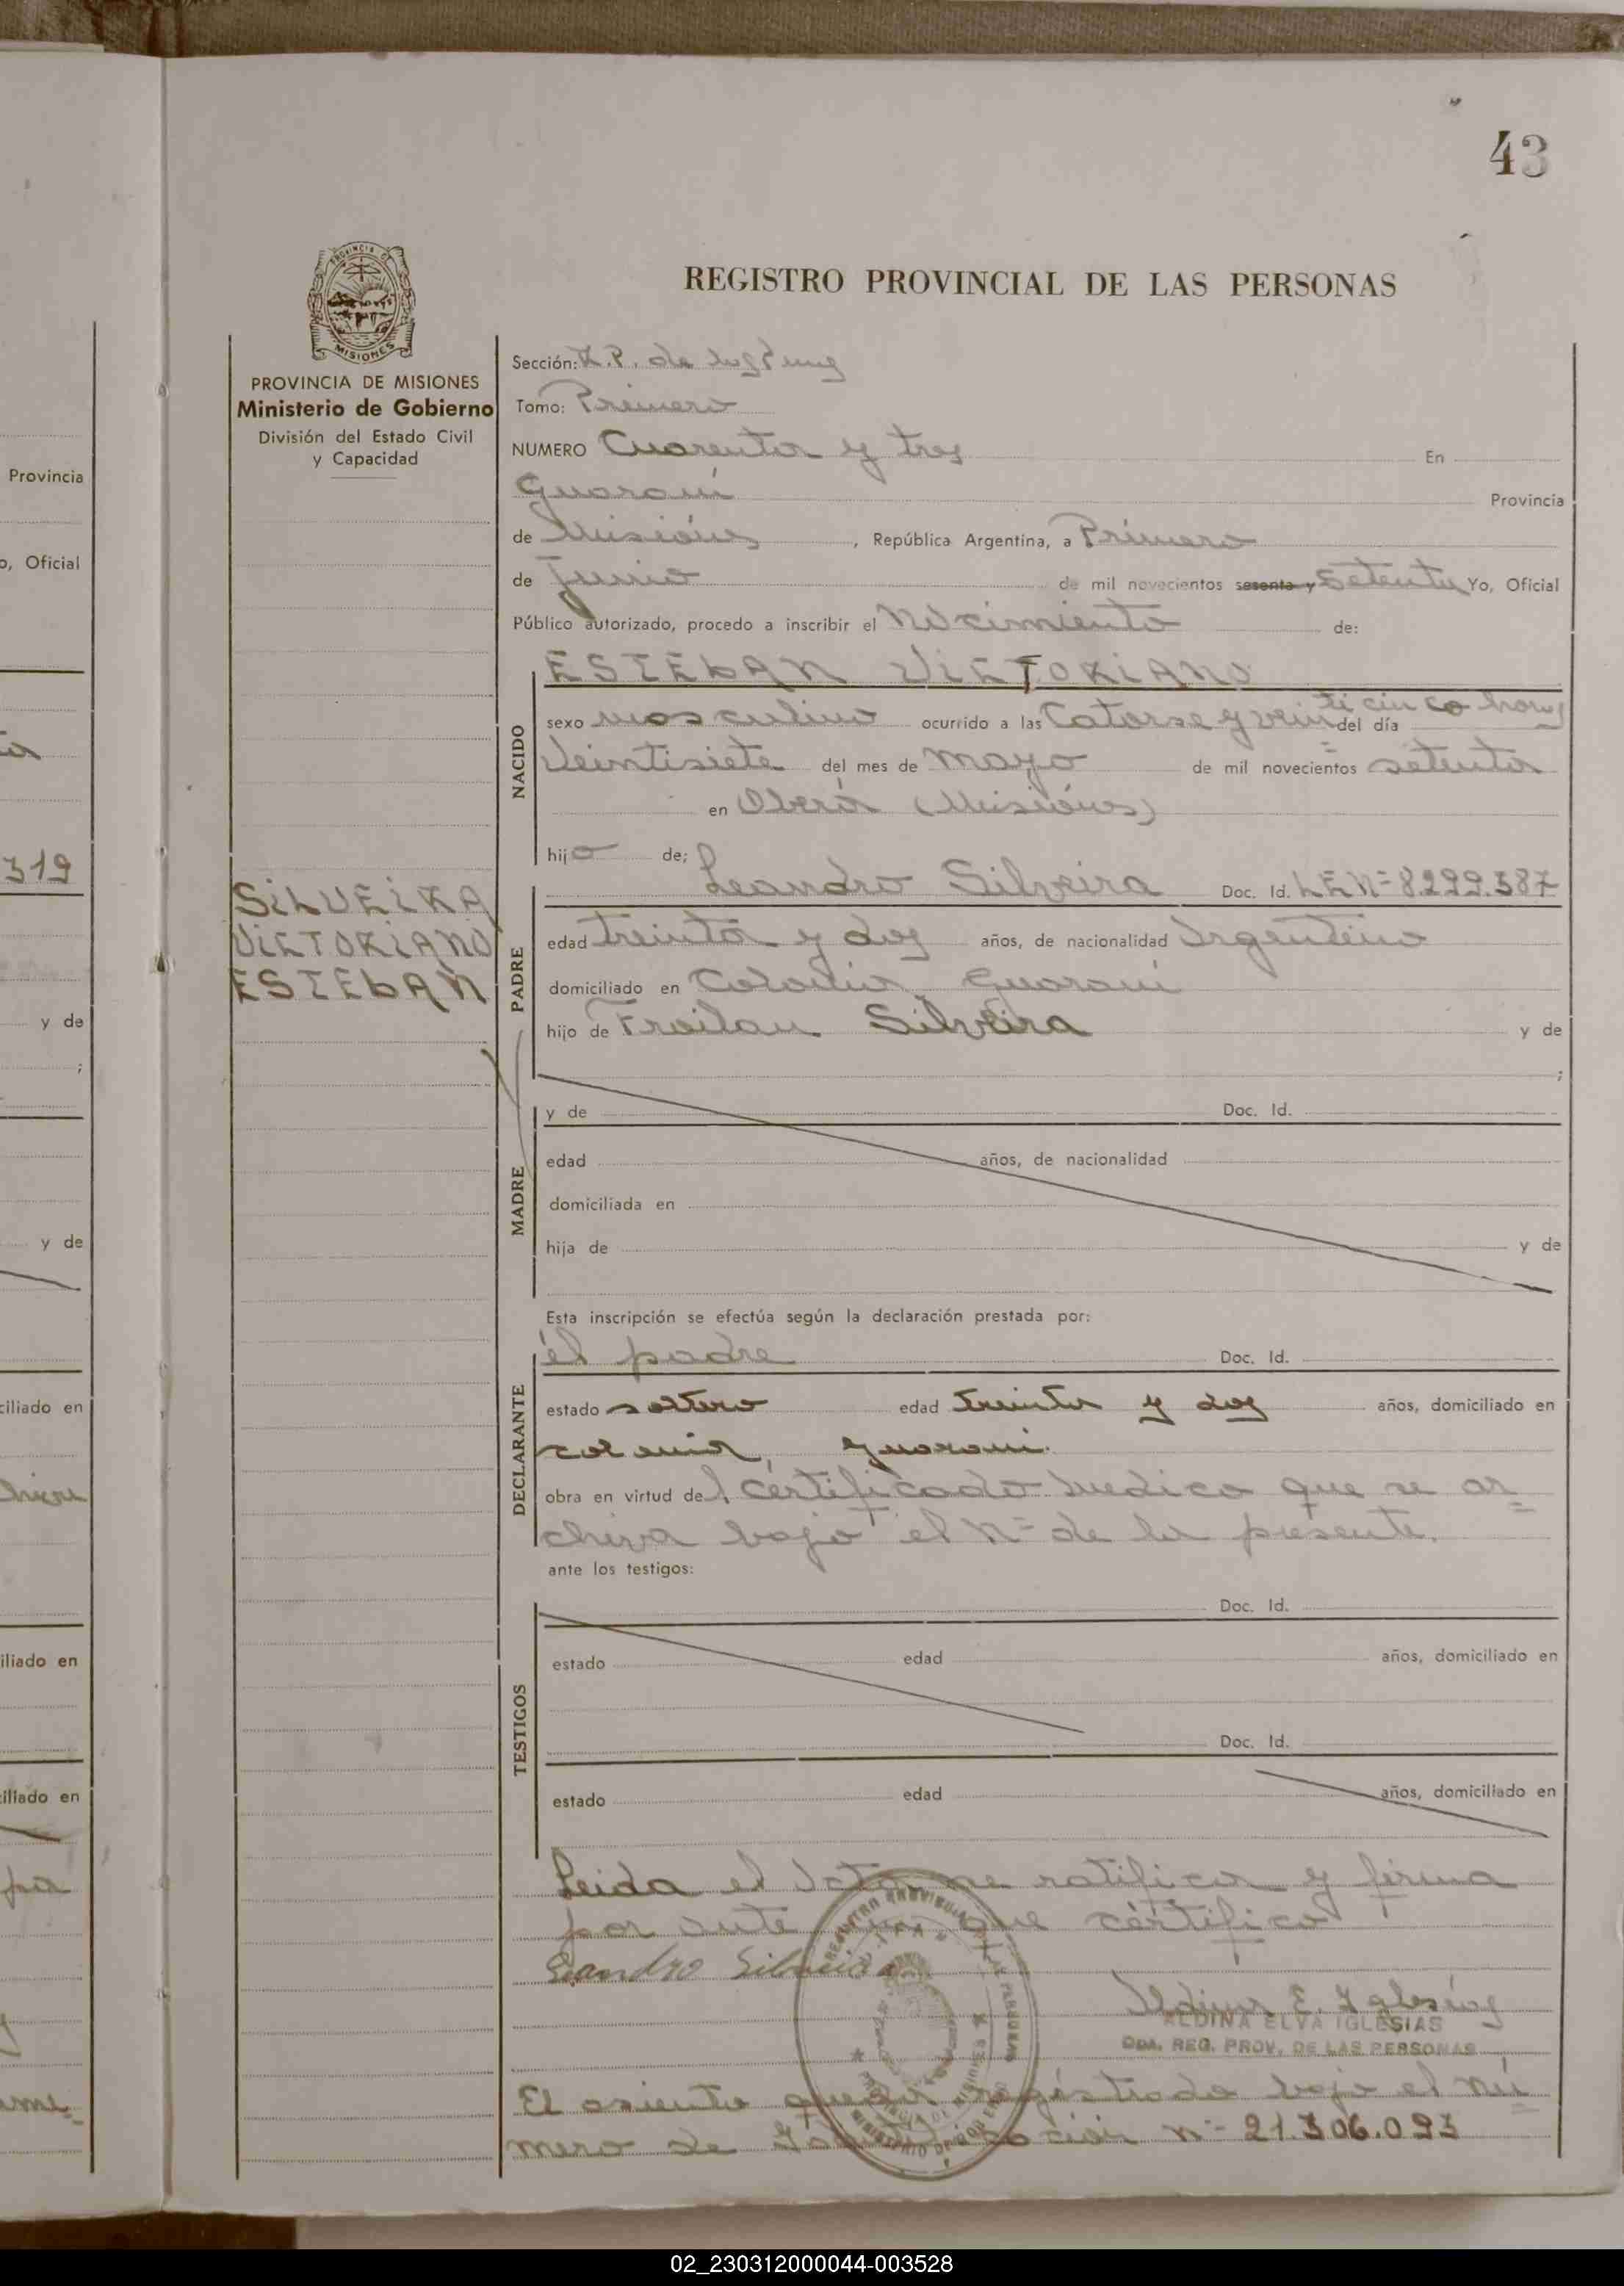 43
REGISTRO PROVINCIAL DE LAS PERSONAS
PROVINCIA DE MISIONES
Ministerio de Gobierno
División del Estado Civil
y Capacidad
SILVEIRA
VICTORIANO
ESTEBAN
Sección: R.P. de las
Tomo: Primero
NUMERO Cuarenta y tres En
Guaraní Provincia
de Misiónes, República Argentina, a Primero
de Junio de mil novecientos sesenta y Setenta Yo, Oficial
Público autorizado, procedo a inscribir el Nacimiento de:
ESTEBAN VICTORIANO
NACIDO
sexo masculino ocurrido a las Catorse y veinticinco horas del día
Veintisiete del mes de mayo de mil novecientos setenta
en Oberá (Misiónes)
hijo de;
PADRE
Leandro Silveira Doc. Id. LE Nº 8.299.387
edad treinta y dos años, de nacionalidad Argentino
domiciliado en Colonia Guaraní
hijo de Froilan Silveira y de
;
MADRE
y de Doc. Id.
edad años, de nacionalidad
domiciliada en
hija de y de
Esta inscripción se efectúa según la declaración prestada por:
DECLARANTE
él padre Doc. Id.
estado soltero edad treinta y dos años, domiciliado en
colonia, guaraní.
obra en virtud del, certificado medico que se ar=
chiva bajo el Nº de la presente.
ante los testigos:
TESTIGOS
Doc. Id.
estado edad años, domiciliado en
Doc. Id.
estado edad años, domiciliado en
Leida el Acta me ratifica y firma
por ante mi que certifico
Leandro Silveira
Aldina E. Iglesias
ALDINA ELVA IGLESIAS
REG. PROV. DE LAS PERSONAS
El asiento queda registrado bajo el nú=
mero de nº 21.306.093
Provincia
o, Oficial
319
y de
;
y de
ciliado en
iliado en
ciliado en
02_230312000044-003528